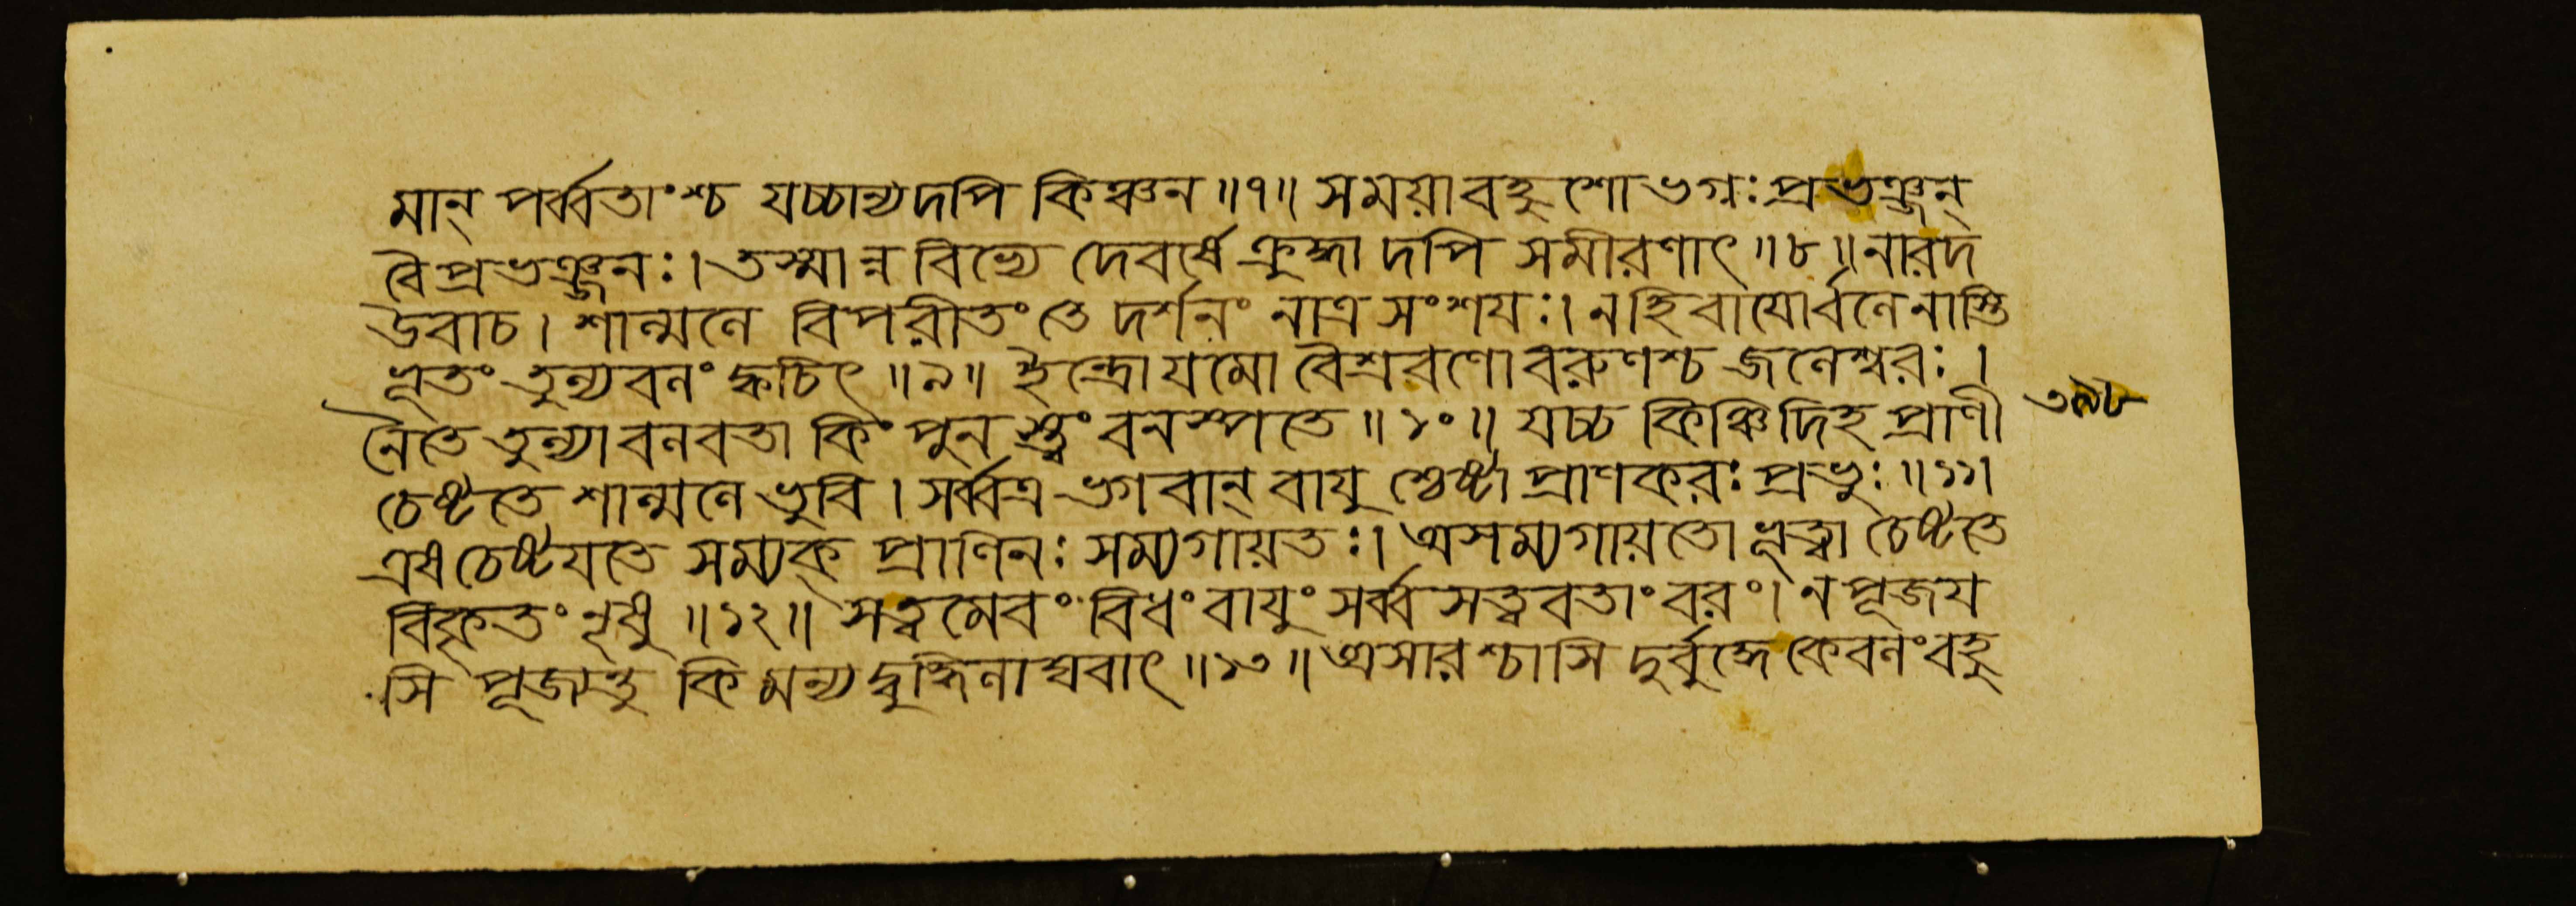 মান্ পর্ব্বতাংশ্চ যচ্চান্যদপি কিঞ্চন॥৭॥ সময়াবহুশোভগ্নঃ প্রভঞ্জন্
বৈপ্রভঞ্জনঃ। তস্মান্ন বিভ্যে দেবর্ষে ক্রুদ্ধাদপি সমীরণাৎ॥৮॥ নারদ
উবাচ। শাল্মলে বিপরীতং তে দর্শনং নাত্র সংশযঃ। নহিবাযোর্বলেনাস্তি
ভূতং তুল্যবলং ক্বচিৎ॥৯॥ ইন্দ্রোযমো বৈশ্রবণোবরুণশ্চ জলেশ্বরঃ।
নৈতে তুল্যাবলবতা কিং পুনস্ত্বং বনস্পতে॥১০॥ যচ্চ কিঞ্চিদিহ প্রাণী
চেষ্টতে শাল্মলে ভুবি। সর্ব্বত্র ভগবান্ বাযুশ্চেষ্টাপ্রাণকরঃ প্রভুঃ॥১১।
এষ চেষ্টযতে সম্যক্ প্রাণিনঃ সম্যগায়তঃ। অসম্যগায়তোভূত্বা চেষ্টতে
বিকৃতং নৃষু॥১২॥ সত্বমেবং বিধং বাযুং সর্ব্বসত্ত্ববতাং বরং। ন পূজয
সি পূজ্যন্তু কিমন্যদ্বুদ্ধিলাঘবাৎ॥১৩॥ অসারশ্চাসি দুর্বুদ্ধে কেবলংবহু
৩৯৮